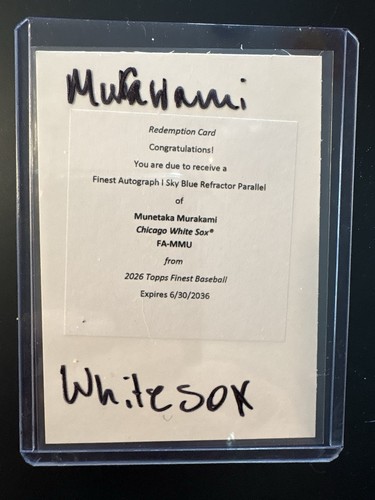 Murakami
Redemption Card
Congratulations!
You are due to receive a
Finest Autograph | Sky Blue Refractor Parallel
of
Munetaka Murakami
Chicago White Sox®
FA-MMU
from
2026 Topps Finest Baseball
Expires 6/30/2036
White sox